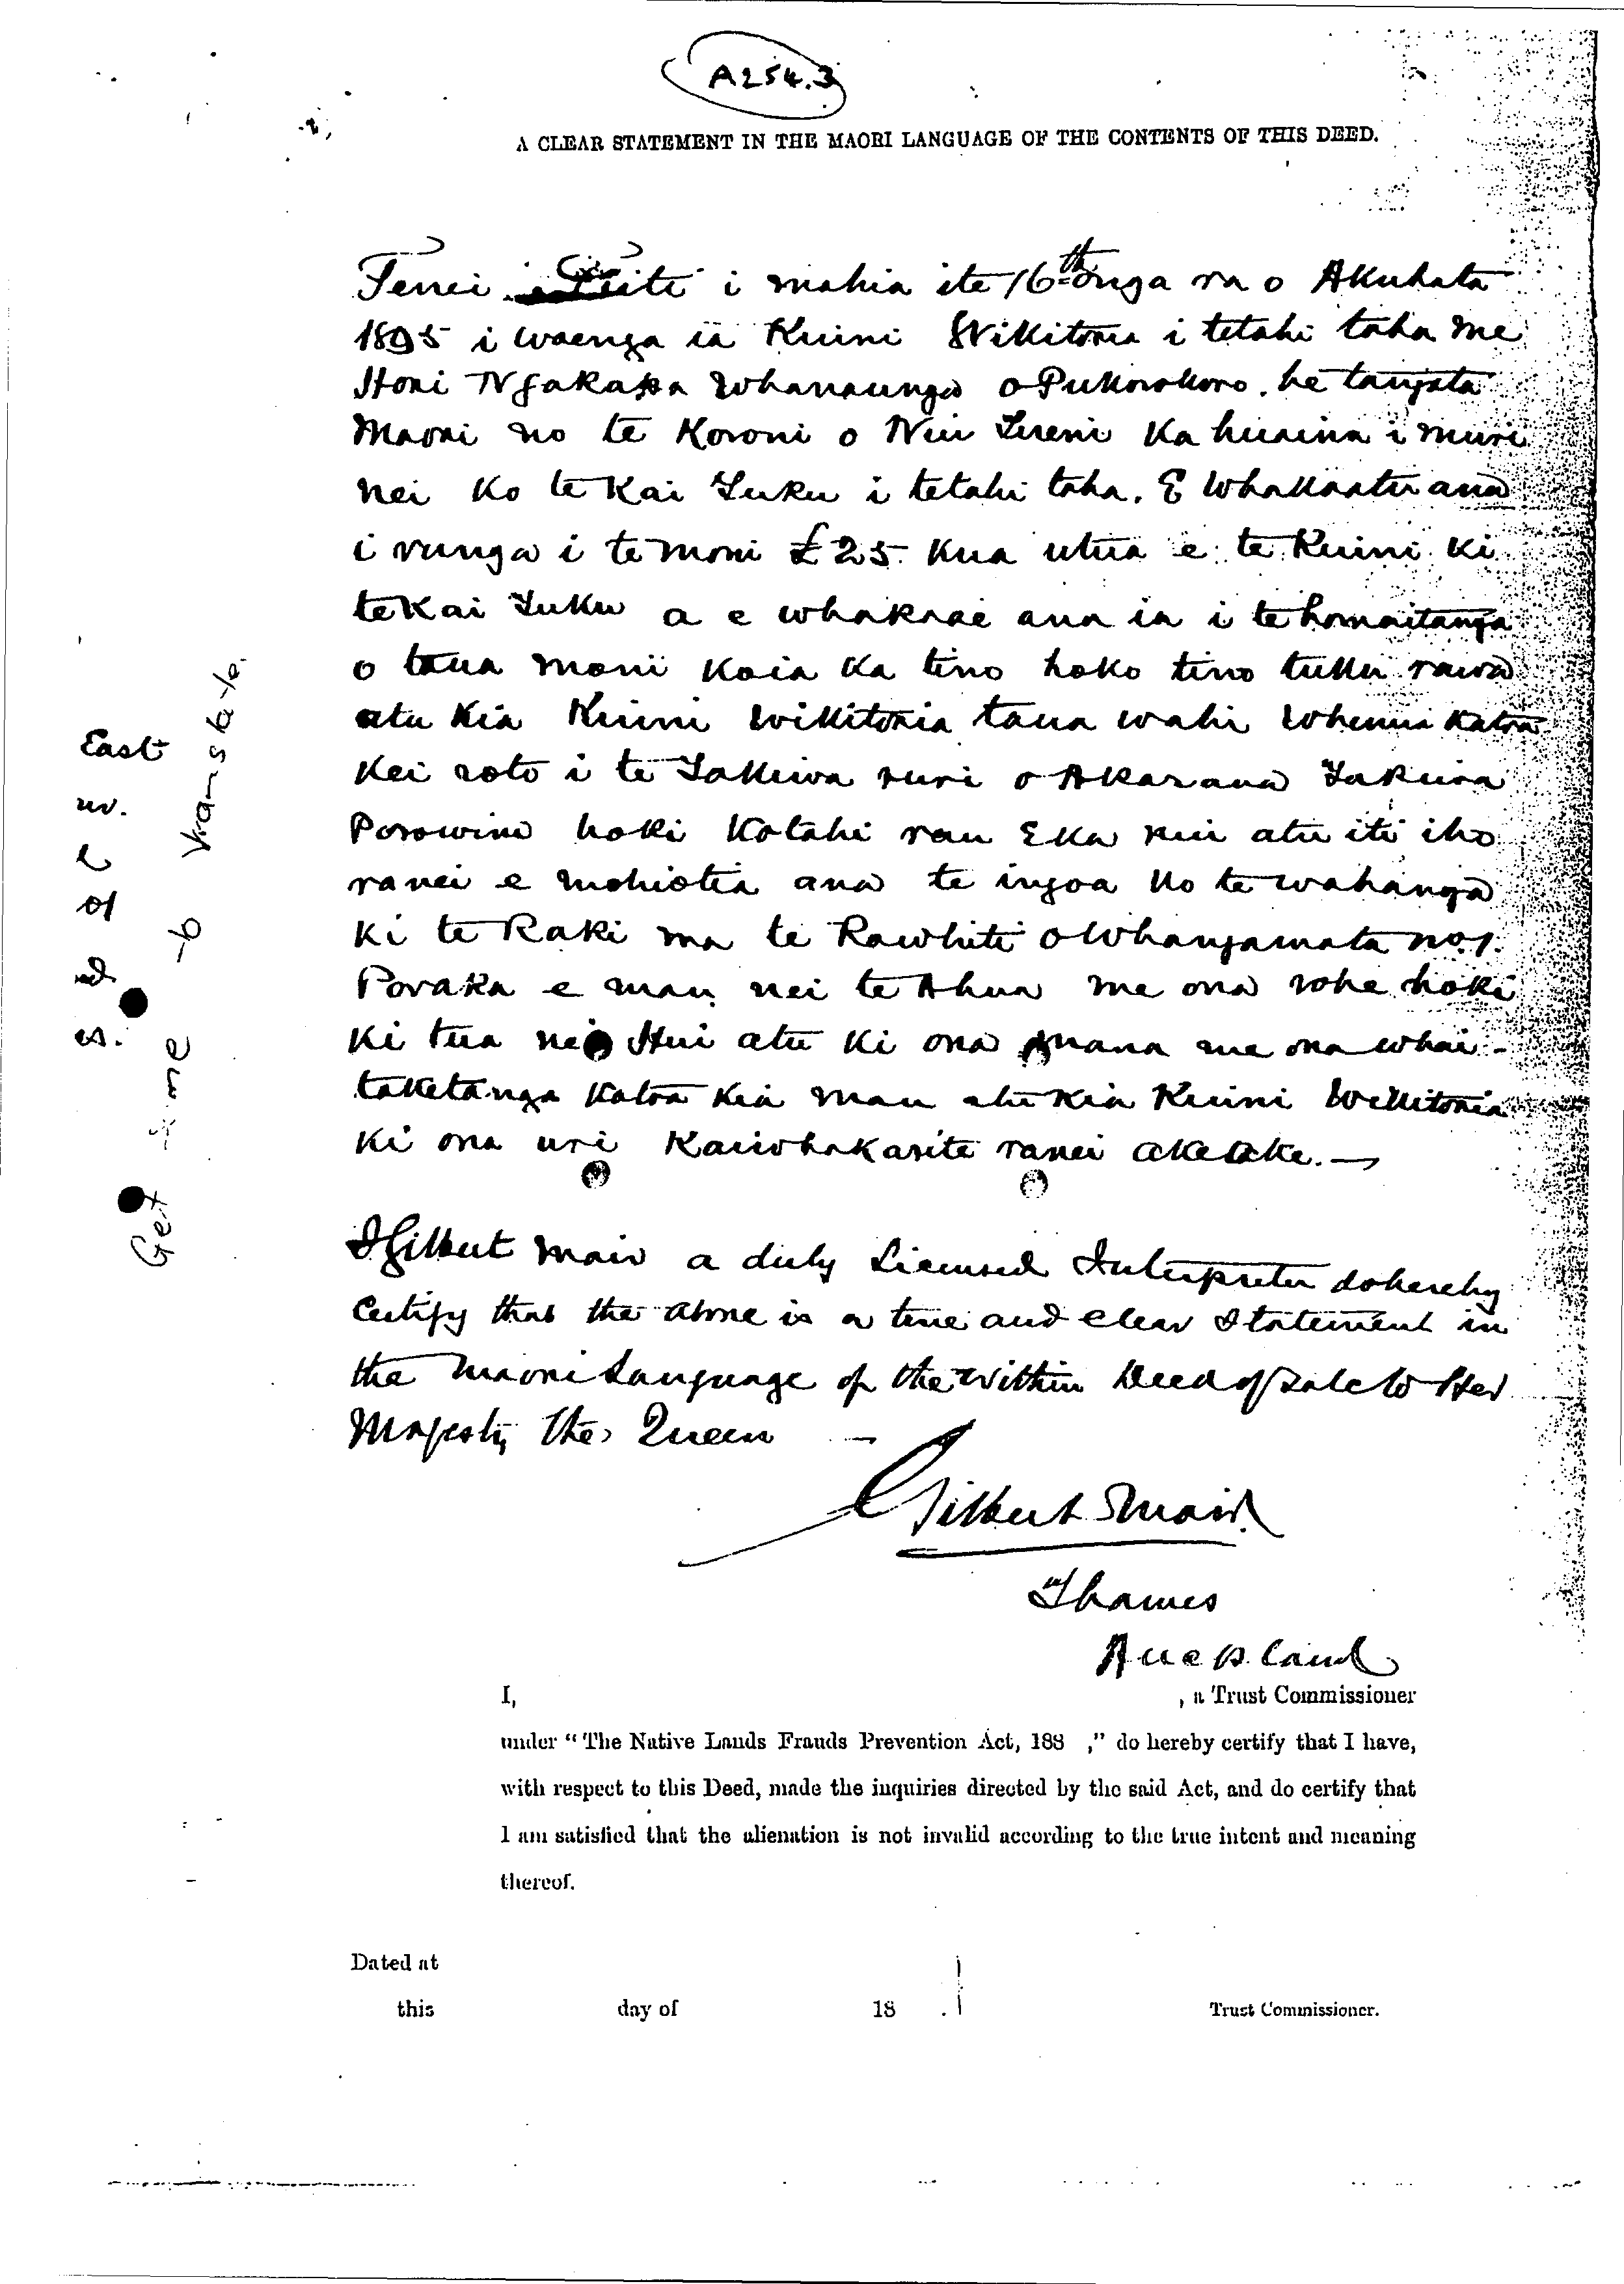 A254.3
A CLEAR STATEMENT IN THE MAORI LANGUAGE OF THE CONTENTS OF THIS DEED.
Tenei Tiiti i mahia ite 16th onga ra o Akuhata
1895 i waenga ia Kuini Wikitoria i tetahi taha me
Honi Ngakapa Whanaunga o Pukorokoro. he tangata
Maori no te Koroni o Niu Tireni Ka huaina i muri
nei Ko te Kai Tuku i tetahi taha. E Whakaatu ana
i runga i te moni £25. Kua utua e te Kuini Ki
te Kai Tuku a e whakaae ana ia i te homaitanga
o taua moni Koia Ka tino hoko tino tuku rawa
atu Kia Kuini Wikitoria taua wahi Whenua Katoa
Kei roto i te Takiwa ruri o Akarana Takiwa
Porowini hoki Kotahi rau Eka nui atu iti iho
ranei e mohiotia ana te ingoa Ko te wahanga
Ki te Raki ma te Rawhiti o Whangamata No 1.
Poraka e mau nei te Ahua me ona rohe hoki
Ki tua nei Hui atu Ki ona mana me ona whai-
taketanga Katoa Kia mau atu Kia Kuini Wikitoria
Ki ona uri Kaiwhakarite ranei ake ake. —
I Gilbert Mair a duly Licensed Interpreter do hereby
Certify that the above is a true and clear Statement in
the Maori Language of the within Deed of Sale to Her
Majesty the Queen —
Gilbert Mair.
Thames
Auckland
East
nv.
l
of
nd
es.
Get time to translate.
I, , a Trust Commissioner
under "The Native Lands Frauds Prevention Act, 188 ," do hereby certify that I have,
with respect to this Deed, made the inquiries directed by the said Act, and do certify that
I am satisfied that the alienation is not invalid according to the true intent and meaning
thereof.
Dated at
this day of 18 .
Trust Commissioner.